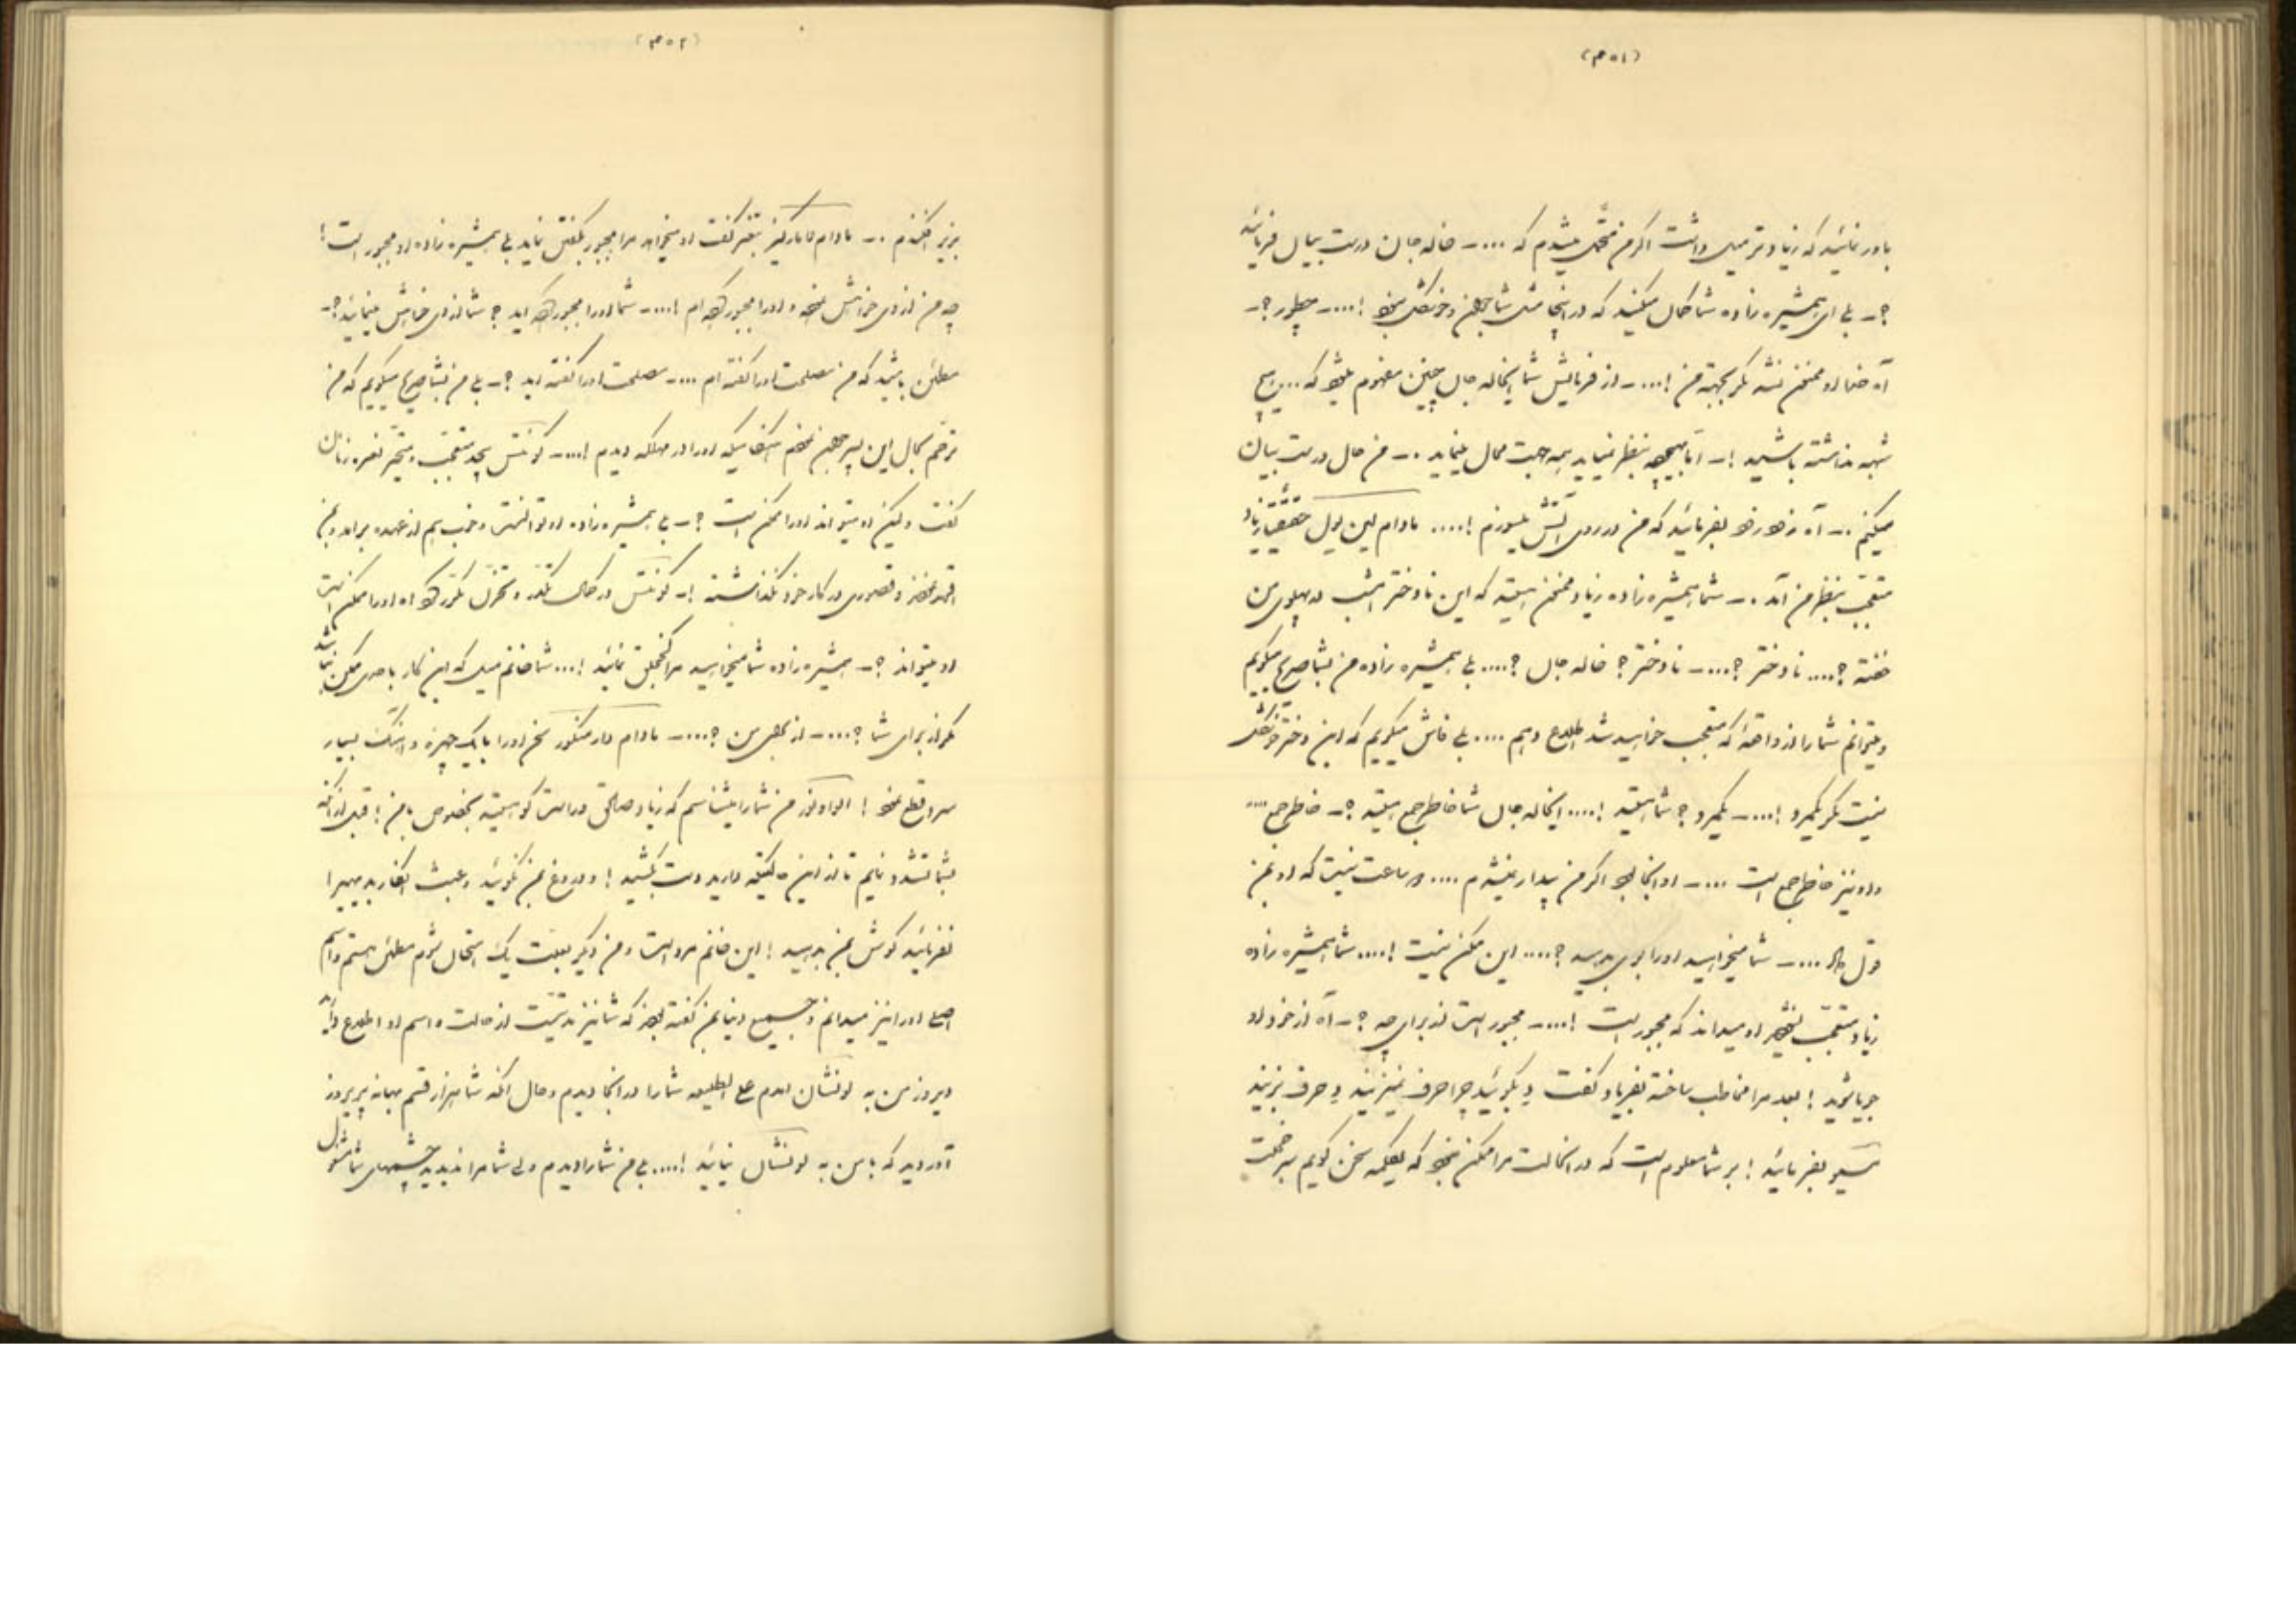 (۳۵۱)
باور نمائید که زیادتر میل داشت اگر من متحمل میشدم که .... ـ خاله جان درست بیان فرمائید
؟ ـ بلی ای همشیره زاده شما گمان میکنید که در اینجا مثل شما جوان و خوشگل نبود !.... ـ چطور ؟ ـ
آه خدا او ممتحن نشد مگر بجهته من !.... ـ از فرمایش شما ایخاله جان چنین مفهوم میشود که ... هیچ
شبهه نداشته باشید ! ـ آیا هیچ بنظر نمیاید همه جهت محال مینماید . ـ من حال درست بیان
میکنم . ـ آه زود زود بفرمائید که من در روی آتش میسوزم !.... مادام این اول حقیقتاً زیاد
متعجب بنظر من آمد . ـ شما همشیره زاده زیاد ممتحن هستید که این نادختر امشب در پهلوی من
خفته ؟.... نادختر ؟.... ـ نادختر ؟ خاله جان ؟.... بلی همشیره زاده من بشما صریح میگویم
و میتوانم شما را از واقعهٔ که متعجب خواهید شد اطلاع دهم .... بلی فاش میگویم که این دختر خوشگل
نیست مگر یکمرد !.... ـ یکمرد ؟ شما هستید !.... ایخاله جان شما خاطر جمع هستید ؟ ـ خاطر جمع ....
و او نیز خاطر جمع است .... ـ او اینجا بود اگر من بیدار میشدم .... دو ساعت نیست که او بمن
قول داد .... ـ شما میخواهید او را بمن بدهید ؟.... این ممکن نیست !.... شما همشیره زاده
زیاد متعجب نشوید او میداند که مجبور است !.... ـ مجبور است از برای چه ؟ ـ آه از خود او
جویا شوید ! بعد مرا مخاطب ساخته بفریاد گفت د بگوئید چرا حرف نمیزنید د حرف بزنید
مسیو بفرمائید ! بر شما معلوم است که در آنحالت مرا ممکن نبود که یکلمه سخن گویم سر خجلت
(۳۵۲)
بزیر افکندم . ـ مادام بتغیر گفت او میخواهد مرا مجبور بگفتن نماید بلی همشیره زاده او مجبور است !
چه من از وی خواهش نموده و او را مجبور کرده ام !.... ـ شما او را مجبور کرده اید ؟ شما از وی خواهش مینمائید ؟ ـ
مطمئن باشید که من مصلحت او را گفته ام .... ـ مصلحت او را گفته اید ؟ ـ بلی من بشما صریح میگویم که من
ترحم بحال این پسر جوان نمودم هنگامیکه او را در مهلکه دیدم !.... ـ کونتس بیحد متعجب و متحیر نعره زنان
گفت ولیکن او میتواند او را ممکن است ؟ ـ بلی همشیره زاده او توانستن و خوب هم از عهده برآمد و بمن
اینقدر تقصیر و قصوری در کار خود نگذاشته ! ـ کونتس در حال تکدر و تغیر مکرر کرد آه او را ممکن است
او میتواند ؟ ـ همشیره زاده شما میخواهید مرا خجل نمائید !... شما خانم میل که این کار با مری ممکن نباشد
مگر از برای شما ؟.... ـ از برای من ؟.... ـ مادام سخن او را با یک چهره و آهنگ بسیار
سرد قطع نمود ! الوادور من شما را میشناسم که زیاد صالح و راست گو هستید بخصوص با من ! قبل از آنکه
بشما تشدد نمایم تا از این دقیقه دارید دست بکشید ! و دروغ بمن نگوئید و عبث انکار بدیهیرا
نفرمائید گوش بمن بدهید ! این خانم مرد است و من دیگر بعلت یک امتحان شوم مطمئن هستم و اسم
اصلی او را نیز میدانم و جمیع دنیا بمن گفته بودند که شما نیز مدتیست از حالت و اسم او اطلاع دارید
دیروز من به لونشان آمدم علی الطلیعه شما را در آنجا دیدم و حال آنکه شما هزار قسم بهانه پریروز
آوردید که با من به لونشان نیائید !.... بلی من شما را دیدم ولی شما مرا ندیدید چشمهای شما مشغول